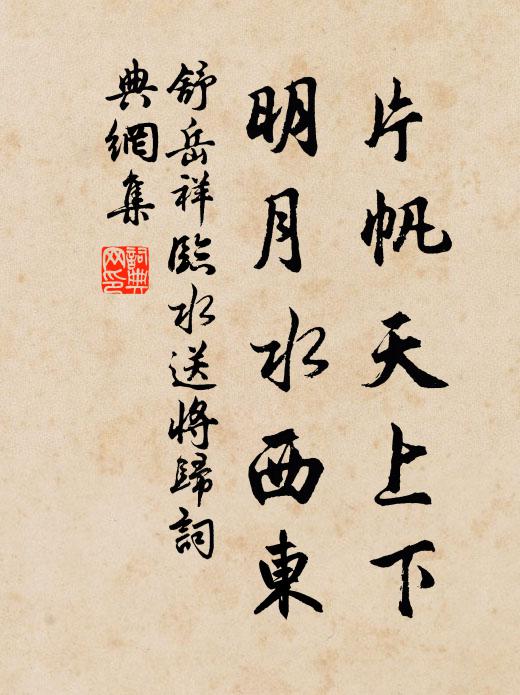 片帆天上下
明月水西東
舒岳祥臨水送將歸詞
典網集
詞典
网印